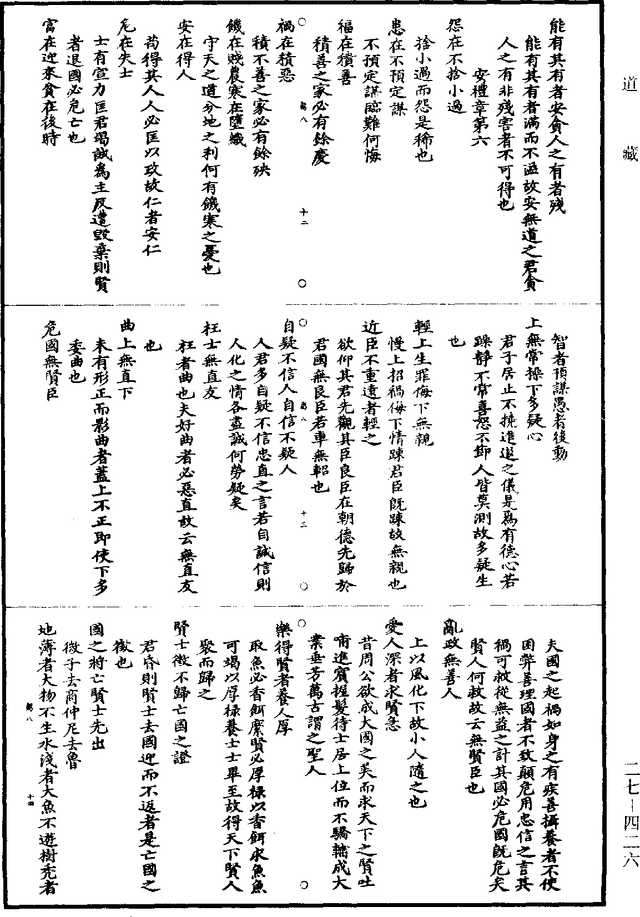 道藏
能有其有者安貪人之有者殘
能有其有者滿而不溢故安無道之君貪
人之有非殘害者不可得也
安禮章第六
怨在不捨小過
捨小過而怨是稀也
患在不預定謀
不預定謀臨難何悔
福在積善
積善之家必有餘慶
禍在積惡
積不善之家必有餘殃
饑在賤農寒在墮織
守天之道分地之利何有饑寒之憂也
安在得人
苟得其人人必匡以政故仁者安仁
危在失士
士有宣力匡君竭誠為主反遭毀棄則賢
者退國必危亡也
富在迎來貧在後時
智者預謀愚者後動
上無常操下多疑心
君子居止不撓進退之儀是為有德心若
躁靜不常喜怒不節人皆莫測故多疑生
也
輕上生罪侮下無親
慢上招禍侮下情踈君臣既踈故無親也
近臣不重遠者輕之
欲仰其君先觀其臣良臣在朝德先歸於
君國無良臣若車無軺也
自疑不信人自信不疑人
人君多自疑不信忠直之言若自誠信則
人化之情各盡誠何勞疑矣
枉士無直友
枉者曲也夫好曲者必惡直故云無直友
也
曲上無直下
未有形正而影曲者蓋上不正即使下多
委曲也
危國無賢臣
夫國之起禍如身之有疾善攝養者不使
困弊善理國者不致顛危用忠信之言其
禍可救從無益之計其國必危國既危矣
賢人何救故云無賢臣也
亂政無善人
上以風化下故小人隨之也
愛人深者求賢急
昔周公欲成大國之美而求天下之賢吐
哺進賓握髮待士居上位而不驕輔成大
業垂芳萬古謂之聖人
樂得賢者養人厚
取魚必香餌縻賢必厚祿以香餌求魚魚
可竭以厚祿養士士畢至故得天下賢人
聚而歸之
賢士徵不歸亡國之證
君昏則賢士去國迎而不返者是亡國之
徵也
國之將亡賢士先出
微子去商仲尼去魯
地薄者大物不生水淺者大魚不遊樹禿者
二七-四二六